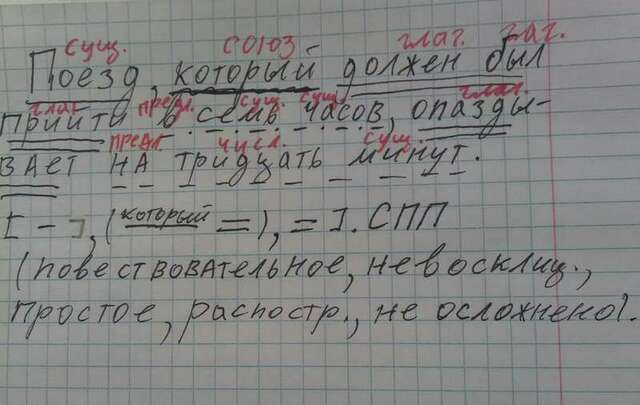 сущ. союз глаг. гаг.
Поезд, который должен был
глаг. предл. сущ. сущ. глаг.
прийти в семь часов, опазды-
предл. числ. сущ.
вает на тридцать минут.
[ - ], (который =), = ]. СПП
(повествовательное, невосклиц.,
простое, распостр., не осложнено).